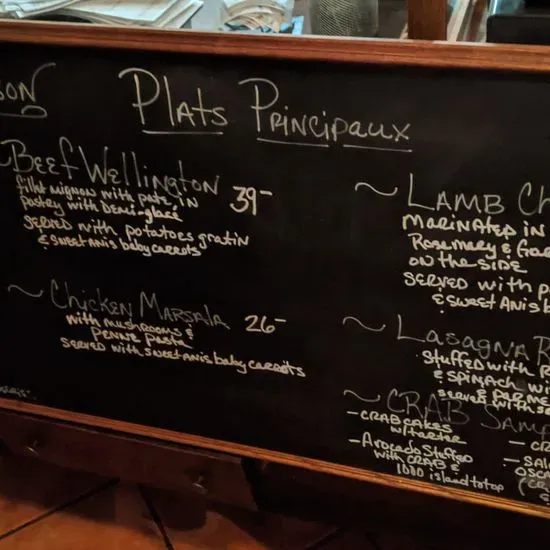 SON
Plats Principaux
~Beef Wellington 39-
fillet mignon with pate, in
pastry with Demi-glacé
served with potatoes gratin
& sweet anis baby carrots
~ Chicken Marsala 26-
with mushrooms &
Penne Pasta
served with sweet anis baby carrots
~ Lamb Ch
marinated in
Rosemary & Gar
on the side
served with p
& sweet Anis b
~ Lasagna R
stuffed with R
& spinach wi
& Parme
served with se
~ CRAB Samp
- CRAB cakes
w/tartar
- Avocado stuffed
with CRAB &
1000 island to top
- CR
- SAL
OSCA
(CR